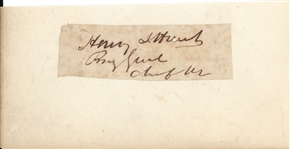 Henry J Hunt
Brig Genl
Chf Art